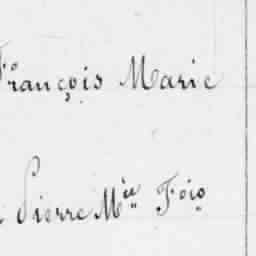 François Marie
Pierre Mie Fçois